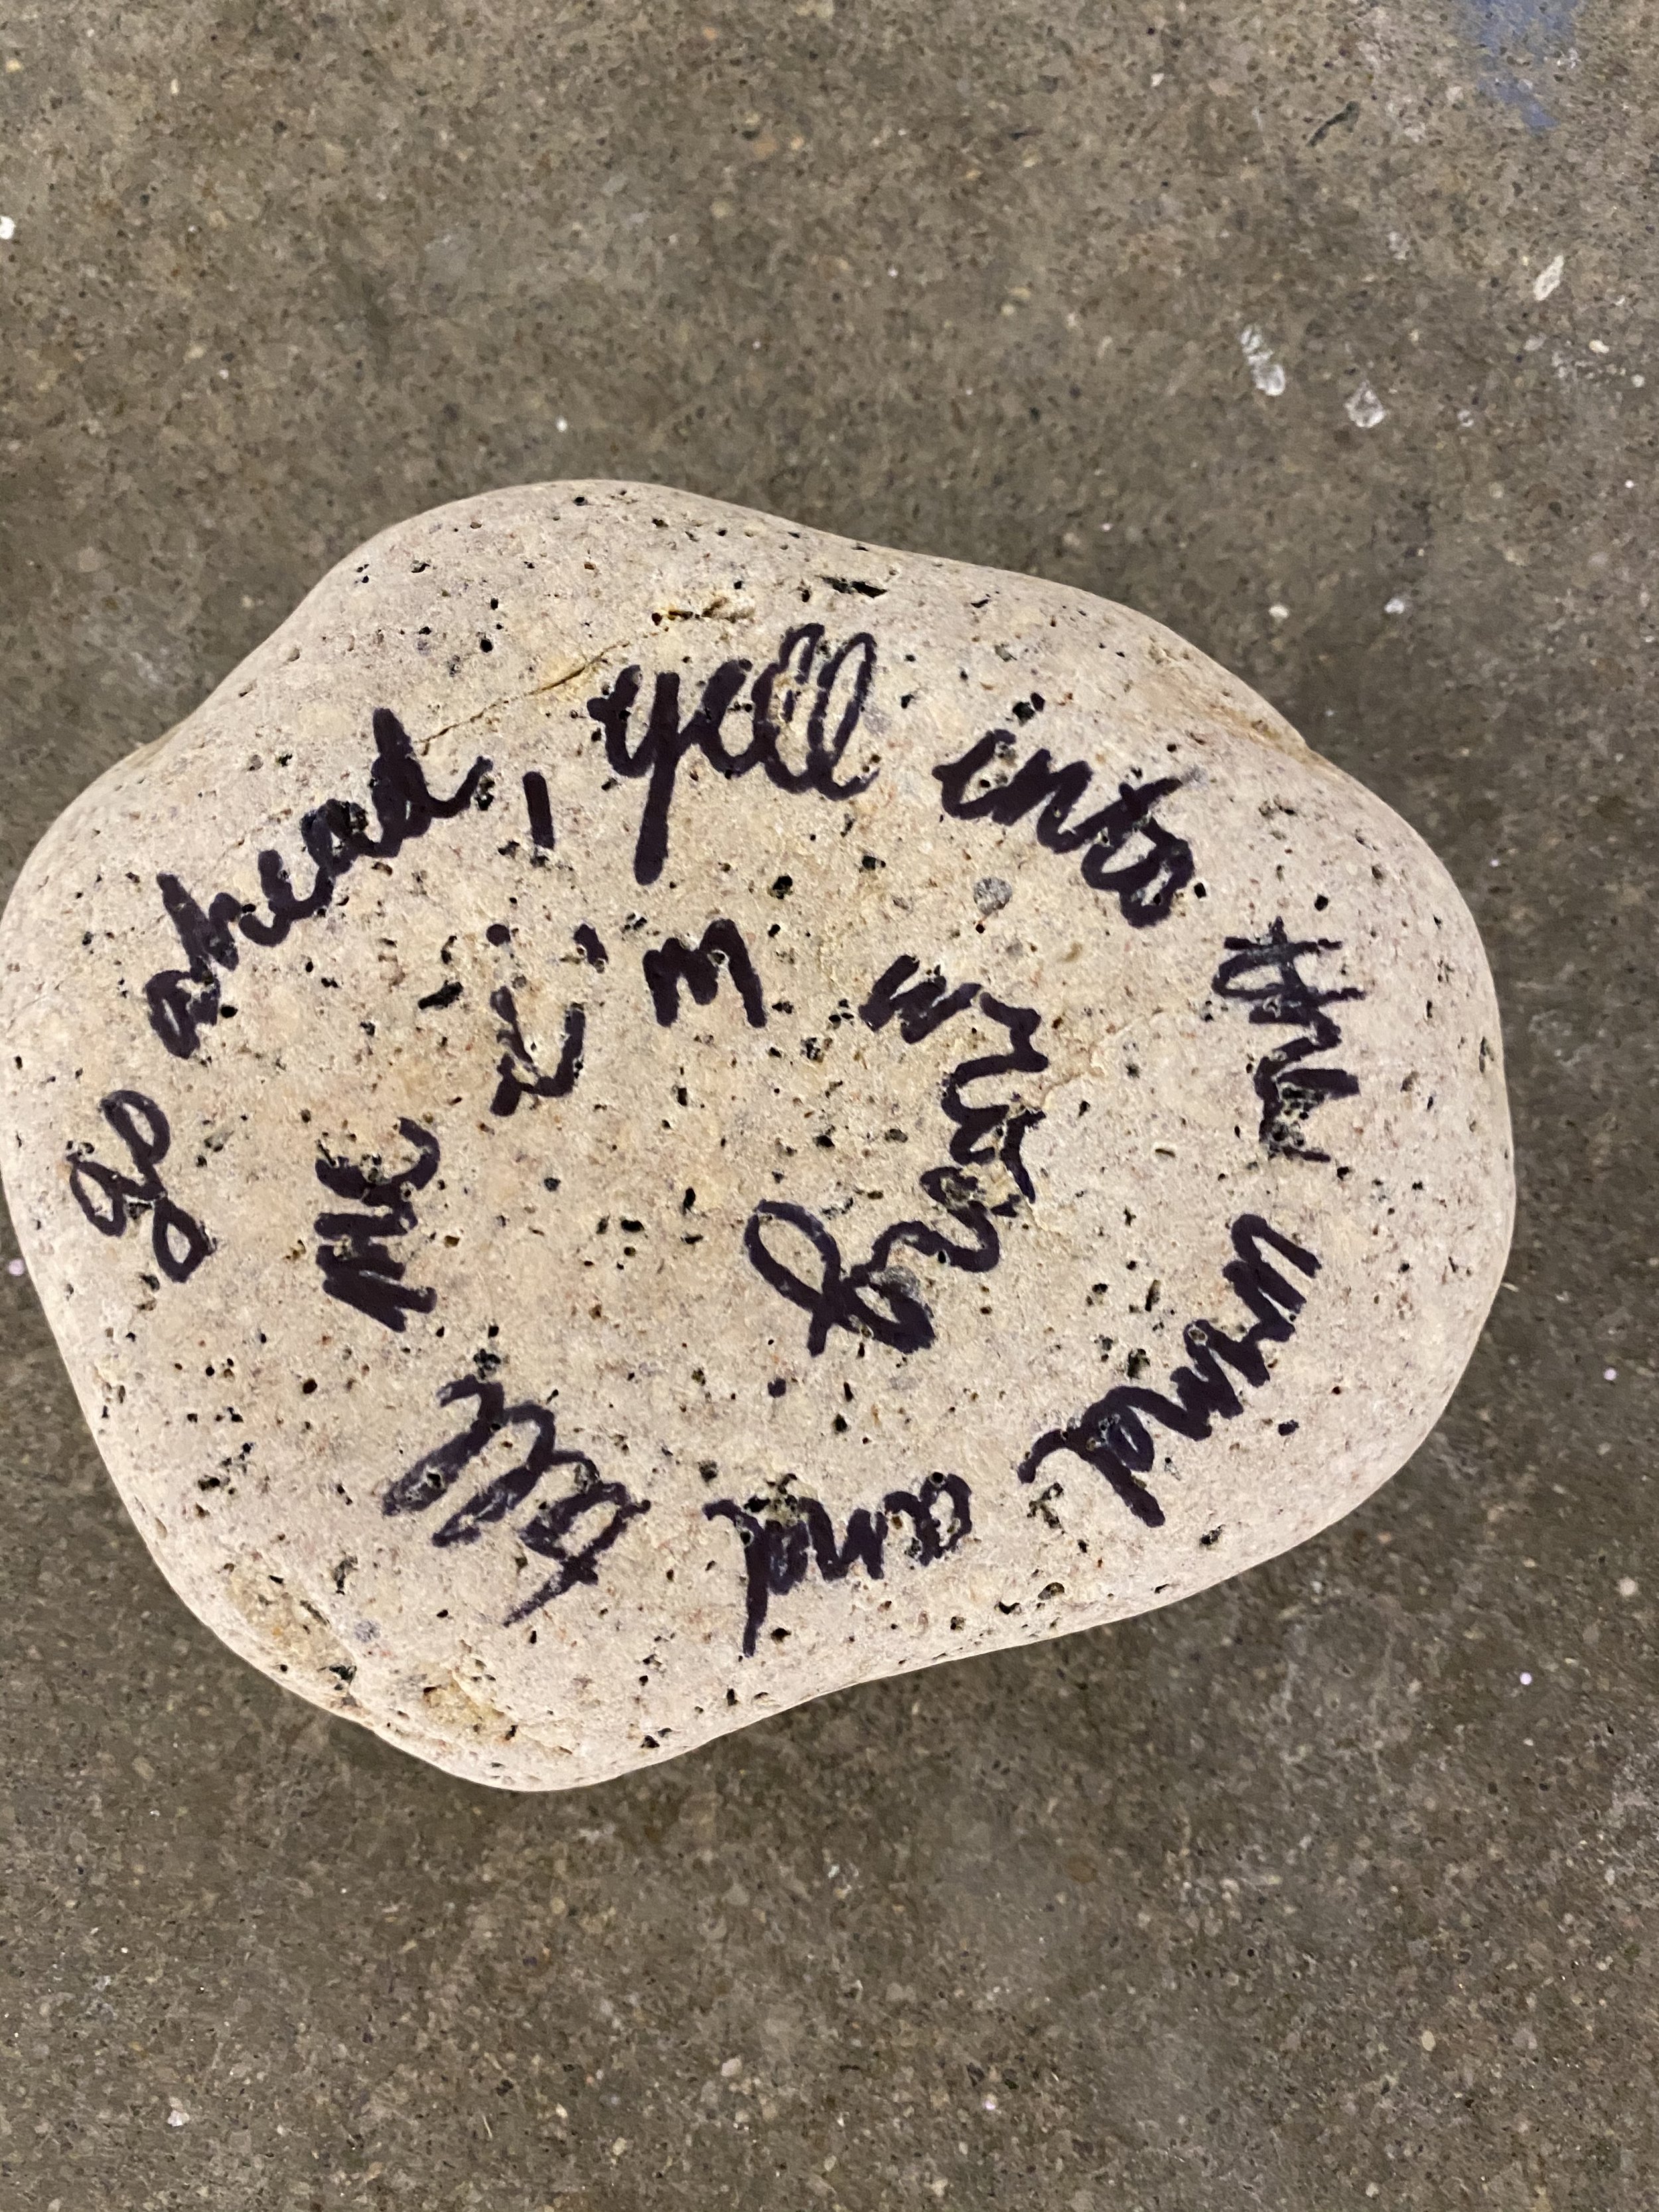 go ahead, yell into the wind and tell me i'm wrong